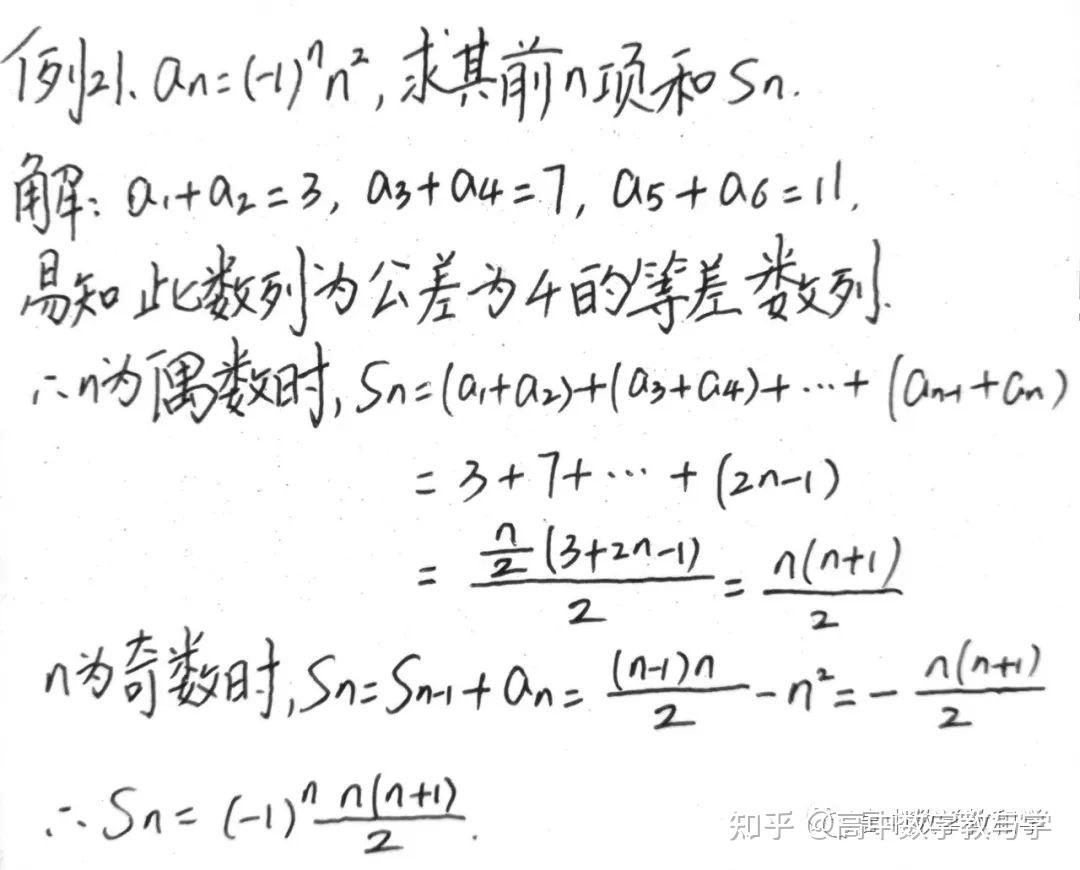 例21. aₙ=(-1)ⁿn², 求其前n项和Sₙ.
解: a₁+a₂=3, a₃+a₄=7, a₅+a₆=11,
易知此数列为公差为4的等差数列.
∴n为偶数时, Sₙ=(a₁+a₂)+(a₃+a₄)+⋯+(aₙ₋₁+aₙ)
=3+7+⋯+(2n-1)
=\frac{\frac{n}{2}(3+2n-1)}{2}=\frac{n(n+1)}{2}
n为奇数时, Sₙ=Sₙ₋₁+aₙ=\frac{(n-1)n}{2}-n²=-\frac{n(n+1)}{2}
∴Sₙ=(-1)ⁿ\frac{n(n+1)}{2}.
知乎 @高中数学教与学